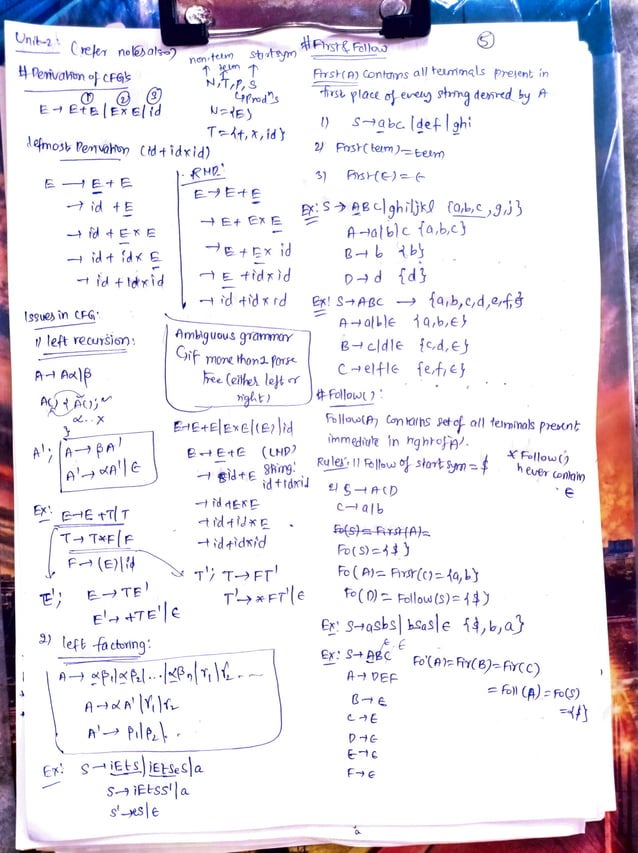 Unit-2: (refer notes also)
# Derivation of CFG's
non-term term start sym
N, T, P, S
Prodⁿs
① ② ③
E → E+E | E×E | id
N={E}
T={+, ×, id}
leftmost Derivation (id+id×id)
E → E+E
→ id + E
→ id + E × E
→ id + id × E
→ id + id×id
RMD:
E → E+E
→ E+E×E
→ E+E× id
→ E +id×id
→ id +id×id
Issues in CFG:
1) left recursion:
A → Aα|β
A';
A → βA'
A' → αA' | ϵ
Ambiguous grammar
if more than 1 parse
tree (either left or
right)
E→E+E|E×E|(E)|id
E → E+E (LMD)
→ id+E string:
id+id×id
→ id+E×E
→ id+id×E
→ id+id×id
Ex: E→E+T|T
T→T*F|F
F→(E)|id
E'; E → TE'
E' → +TE'|ϵ
T'; T→FT'
T'→*FT'|ϵ
2) left factoring:
A → αβ₁|αβ₂|...|αβn|γ₁|γ₂...
A→αA'|γ₁|γ₂
A' → β₁|β₂|..
Ex: S→iEtS|iEtSeS|a
S→iEtSS'|a
S'→eS|ϵ
# First & Follow
⑤
First(A) contains all terminals present in
first place of every string desired by A
1) S→abc|def|ghi
2) First(term)=term
3) First(ϵ)=ϵ
Ex: S→ABC|ghi|jkl {a,b,c,g,j}
A→a|b|c {a,b,c}
B→b {b}
D→d {d}
Ex: S→ABC → {a,b,c,d,e,f,ϵ}
A→a|b|ϵ {a,b,ϵ}
B→c|d|ϵ {c,d,ϵ}
C→e|f|ϵ {e,f,ϵ}
# Follow():
Follow(A) contains set of all terminals present
immediate in right of 'A'.
Rules: 1) Follow of start sym = $
* Follow()
never contain
ϵ
2) S→ACD
C→a|b
Fo(S)=First(A)=
Fo(S)={$}
Fo(A)=First(C)={a,b}
Fo(D)=Follow(S)={$}
Ex: S→aSbS|bSaS|ϵ {$,b,a}
Ex: S→ABC
ϵ ϵ
Fo(A)=Fir(B)=Fir(C)
A→DEF
= Foll(A)=Fo(S)
={$}
B→ϵ
C→ϵ
D→ϵ
E→ϵ
F→ϵ